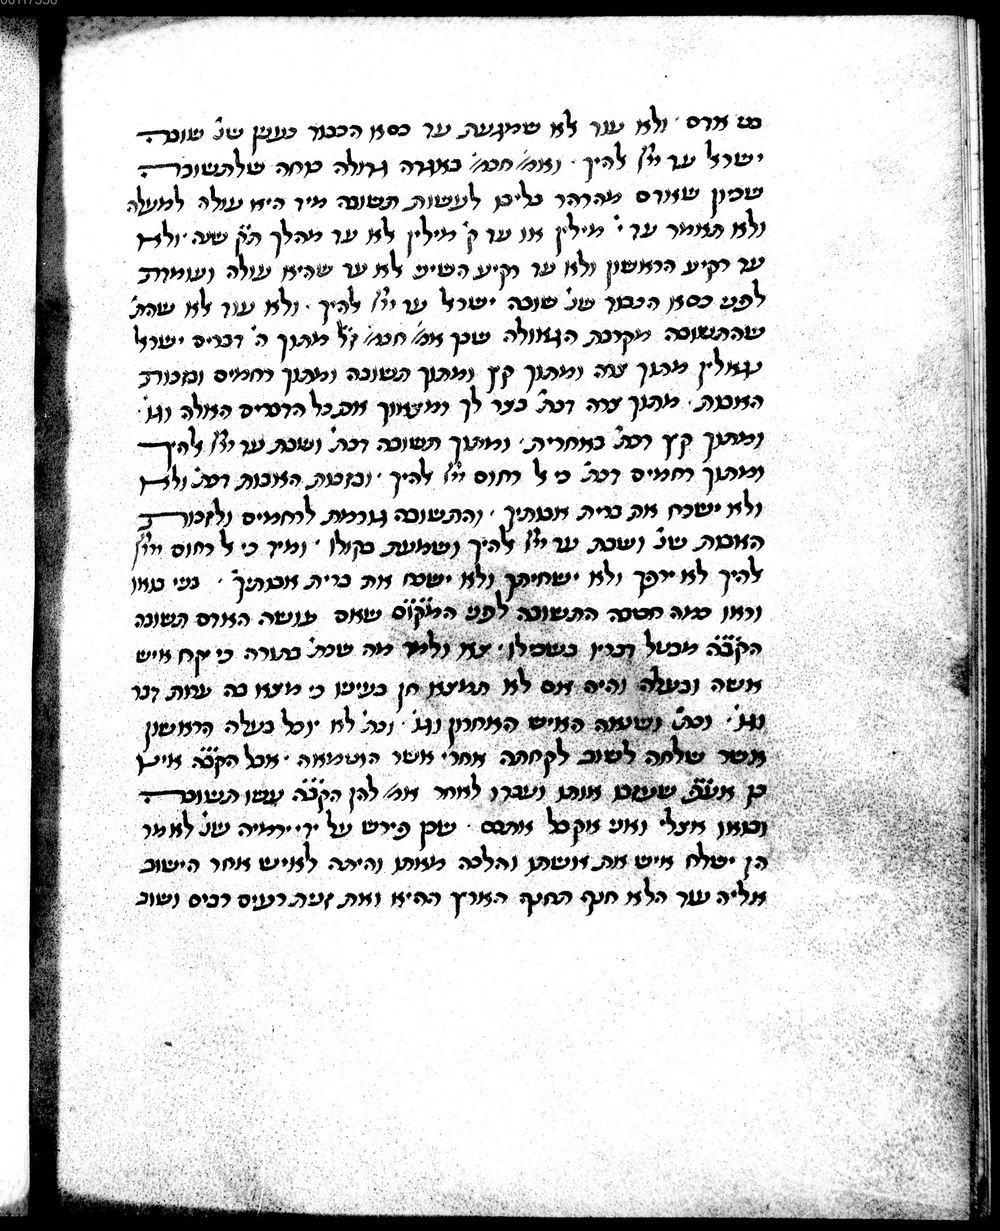 בני אדם · ולא עוד אלא שמגעת עד כסא הכבוד כענין שנ' שובה
ישראל עד ייי אלהיך · ואמ' חכמ' באגדה גדולה כוחה שלתשובה
שכיון שאדם מהרהר בליבו לעשות תשובה מיד היא עולה למעלה
ולא תאמר עד י' מילין או עד ק' מילין לא עד מהלך ת"ק שנה · ולא
עד רקיע הראשון ולא עד רקיע השיני אלא עד שהיא עולה ועומדת
לפני כסא הכבוד שנ' שובה ישראל עד ייי אלהיך · ולא עוד אלא שהת'
שהתשובה מקרבת הגאולה שכך אמ' חכמ' ז"ל מתוך ה' דברים ישראל
נגאלין מתוך צרה ומתוך קץ ומתוך תשובה ומתוך רחמים ובזכות
האבות · מתוך צרה דכת' בצר לך ומצאוך את כל הדברים האלה וגו' ·
ומתוך קץ דכת' באחרית · ומתוך תשובה דכת' ושבת עד ייי אלהיך
ומתוך רחמים דכת' כי אל רחום ייי אלהיך · ובזכות האבות דכת' ולא
ולא ישכח את ברית אבותיך · והתשובה גורמת לרחמים ולזכות
האבות שנ' ושבת עד ייי אלהיך ושמעת בקולו · ומיד כי אל רחום ייי
אלהיך לא ירפך ולא ישחיתך ולא ישכח את ברית אבותיך · בני בואו
וראו כמה חביבה התשובה לפני המקום שאם עושה האדם תשובה
הקב"ה מבטל דבריו בשבילו · צא ולמד מה שכת' בתורה כי יקח איש
אשה ובעלה והיה אם לא תמצא חן בעיניו כי מצא בה ערות דבר
וגו' · וכת' ושנאה האיש האחרון וגו' · וכת' לא יוכל בעלה הראשון
אשר שלחה לשוב לקחתה אחרי אשר הוטמאה · אבל הקב"ה אינו
כן אע"פ שעזבו אותו ועבדו לאחר אמ' להן הקב"ה עשו תשובה
ובואו אצלי ואני אקבל אתכם · שכן פירש על ידי ירמיה שנ' לאמר
הן ישלח איש את אושתו והלכה מאתו והיתה לאויש אחר הישוב
אליה עוד הלא חנוף תחנף הארץ ההיא ואת זנית רעים רבים ושוב